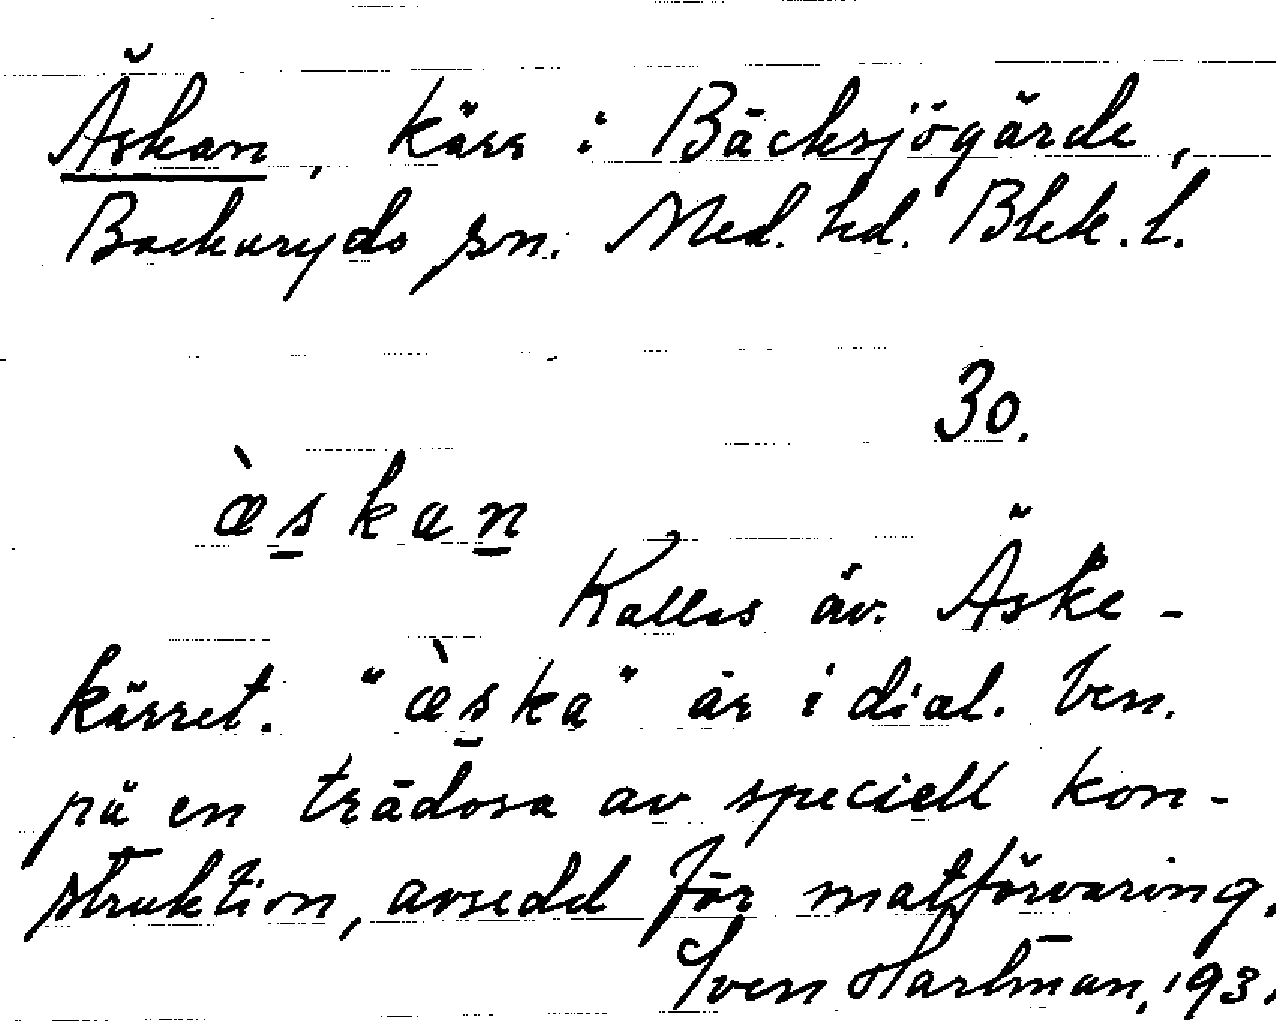 Äskan, kärr i Bäcksjögärde,
Backaryds sn. Med. hd. Blek. l.
30.
æ̀skan
Kallas äv. Äske-
kärret. "æ̀ska" är i dial. ben.
på en trädosa av speciell kon-
struktion, avsedd för matförvaring.
Sven Hartman, 193